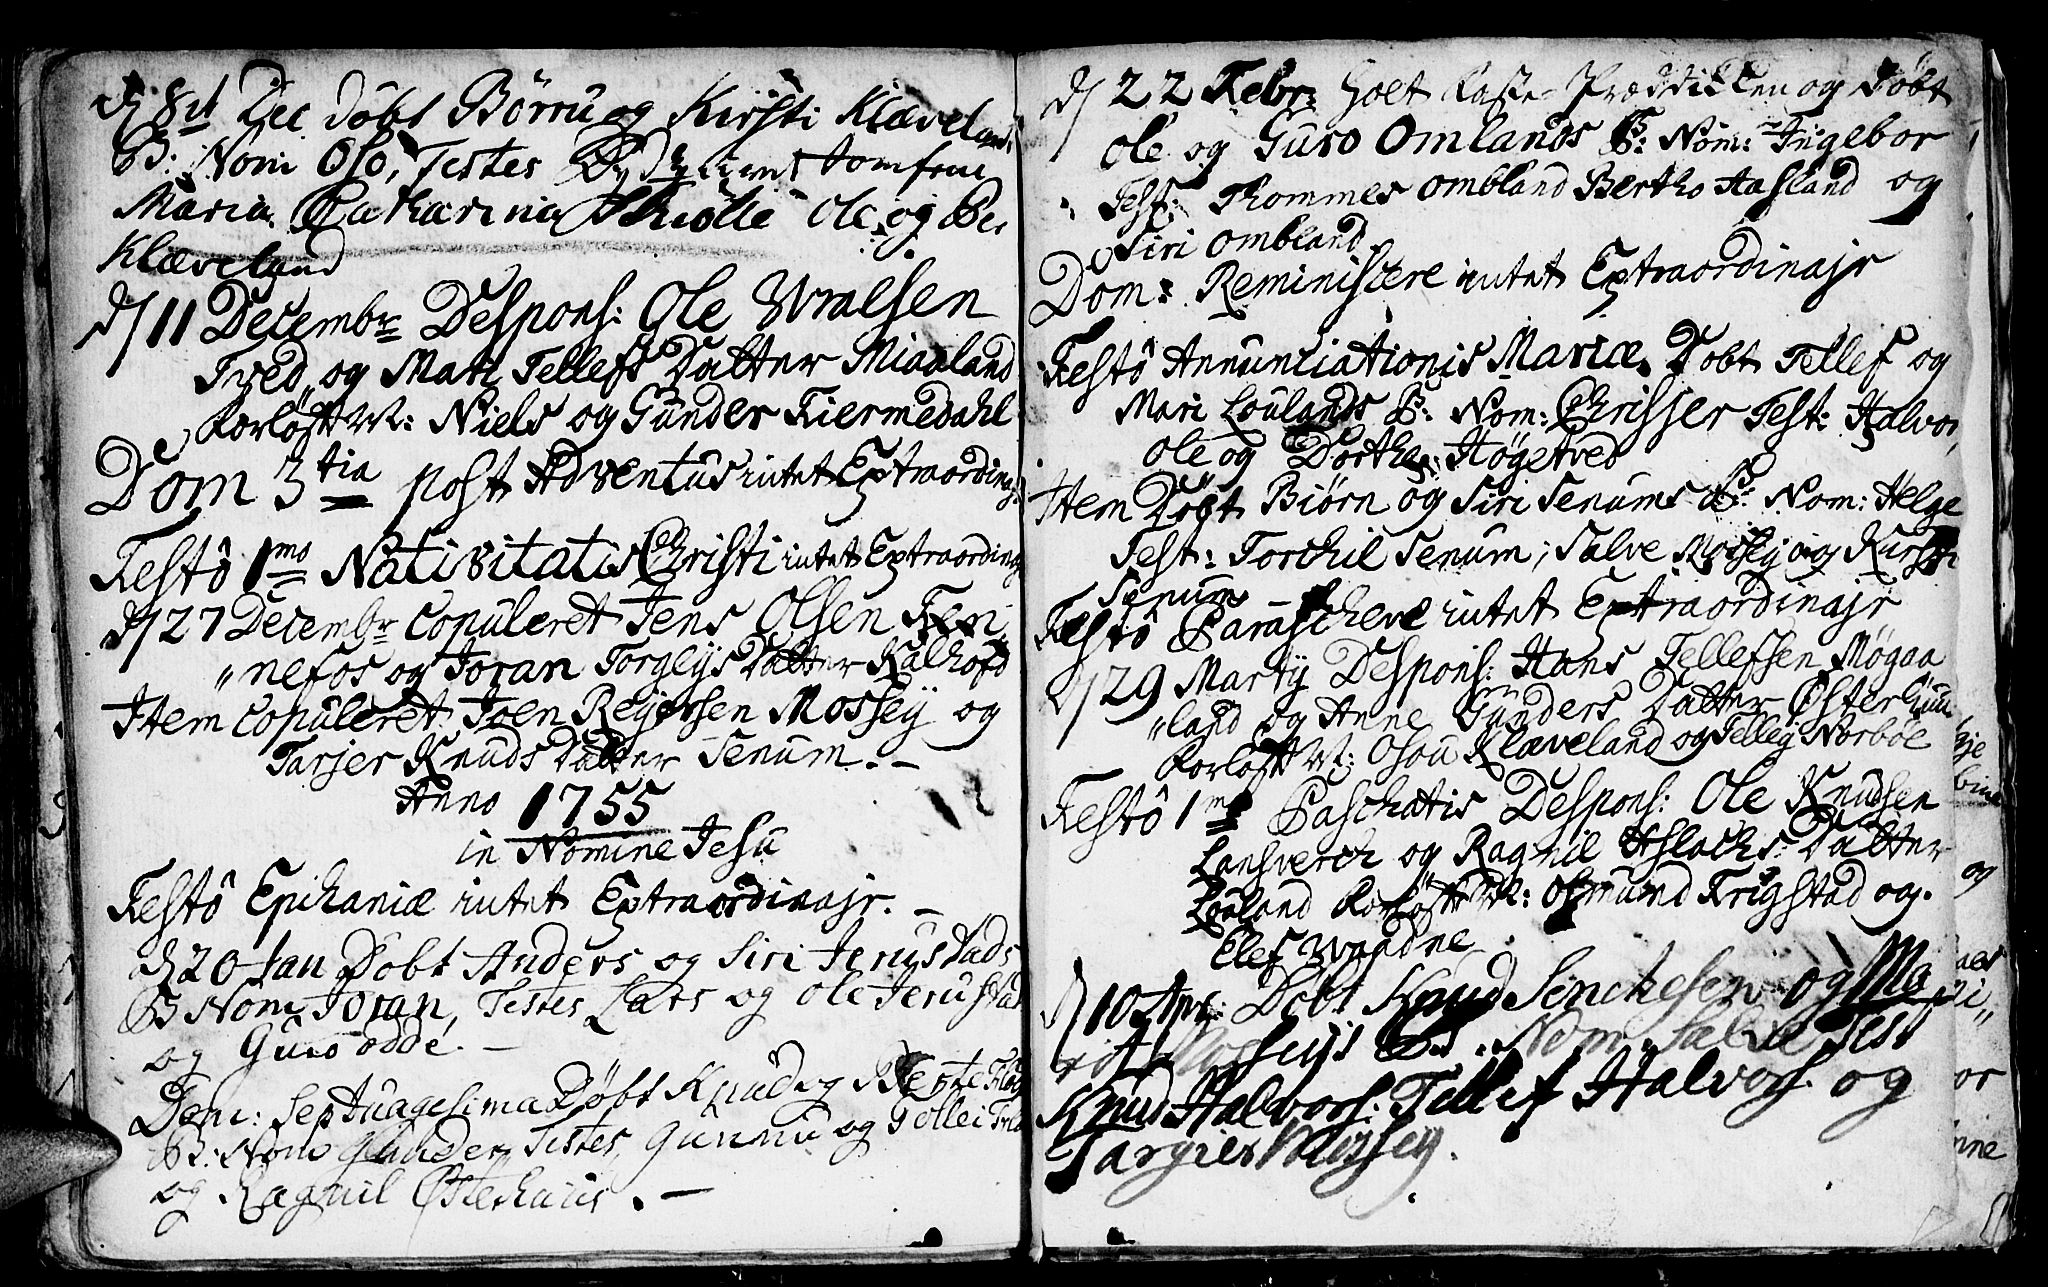 d/ 8d Dec døbt Börru og Kirsti Klæveland
B: Nom Oso, Testes Jomfrue
Maria Catharina Ole og
Klæveland
d/ 11 Decembr Despons: Ole Wralsen
Tved og Mari Tellefs Datter Miaaland
Korløfft: Niels og Gunder Kiermedahl
Dom 3tia post Adventus intet Extraordinaj
Festô 1mo Nativitatis Christi intet Extraordinaj
d/ 27 Decembr Copuleret Jens Olsen Fen
"nefos og Joran Torgeys Datter Kalhofd
Item Copuleret Joen Reyersen Mossey og
Tarjer Knuds Datter Senum. -
Anno 1755
in Nomine Jesu
Festô Epihaniæ intet Extraordinajr. -
d/ 20 Jan Døbt Anders og Siri Jerustads
B Nom Joran, Testes Lars og Ole Jerustad
og Guro Odde. -
Dom: Septuagesima Døbt Knud og Berte
B: Nom Gunder, Testes, Gunnu og Tollei
og Ragnil Østerhuus. -
d/ 22 Febr: Holt Faste-Præddikken og Døbt
Ole og Guro Omlands B: Nom: Ingebor
Test: Thommes Ombland Bertho Hasland og
Siri Ombland
Dom: Reminiscere intet Extraordinajr
Festô Annunciationis Mariæ Døbt Tellef og
Mari Loulands B: Nom: Chrisser Test: Halvor,
Ole og Dorthe Høgetved
Item Døbt Biørn og Siri Senums B: Nom: Helge
Test: Torchil Senum; Salve Mossey og Kirsti
Senum
Festô Parascheve intet Extraordinajr
d/ 29 Martij Despons: Hans Tellefsen Møgaa
"land og Anne Gunders Datter Østerhuu
Korløfft: Osou Klæveland og Tellef Norboe
Festô 1mo Paschatis Despons: Ole Knudsen
Lansverck og Ragnil Aslachs Datter
Louland Korløfft: Osmund Frigstad og
Elef Waadne
d/ 10 Apr: Døbt Knud Senchesen og Ma
rit Mosseyis B: Nom. Salve Test
Knud Halvors: Tellef Halvors: og
Targier Mossey.